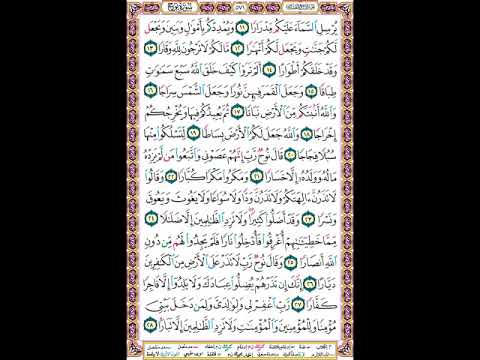 سورة نوح
٥٧١
يُرْسِلِ السَّمَاءَ عَلَيْكُم مِّدْرَارًا ١١ وَيُمْدِدْكُم بِأَمْوَالٍ وَبَنِينَ وَيَجْعَل
لَّكُمْ جَنَّاتٍ وَيَجْعَل لَّكُمْ أَنْهَارًا ١٢ مَّا لَكُمْ لَا تَرْجُونَ لِلَّهِ وَقَارًا ١٣
وَقَدْ خَلَقَكُمْ أَطْوَارًا ١٤ أَلَمْ تَرَوْا كَيْفَ خَلَقَ اللَّهُ سَبْعَ سَمَاوَاتٍ
طِبَاقًا ١٥ وَجَعَلَ الْقَمَرَ فِيهِنَّ نُورًا وَجَعَلَ الشَّمْسَ سِرَاجًا ١٦
وَاللَّهُ أَنبَتَكُم مِّنَ الْأَرْضِ نَبَاتًا ١٧ ثُمَّ يُعِيدُكُمْ فِيهَا وَيُخْرِجُكُمْ
إِخْرَاجًا ١٨ وَاللَّهُ جَعَلَ لَكُمُ الْأَرْضَ بِسَاطًا ١٩ لِّتَسْلُكُوا مِنْهَا
سُبُلًا فِجَاجًا ٢٠ قَالَ نُوحٌ رَّبِّ إِنَّهُمْ عَصَوْنِي وَاتَّبَعُوا مَن لَّمْ يَزِدْهُ
مَالُهُ وَوَلَدُهُ إِلَّا خَسَارًا ٢١ وَمَكَرُوا مَكْرًا كُبَّارًا ٢٢ وَقَالُوا
لَا تَذَرُنَّ آلِهَتَكُمْ وَلَا تَذَرُنَّ وَدًّا وَلَا سُوَاعًا وَلَا يَغُوثَ وَيَعُوقَ
وَنَسْرًا ٢٣ وَقَدْ أَضَلُّوا كَثِيرًا وَلَا تَزِدِ الظَّالِمِينَ إِلَّا ضَلَالًا ٢٤
مِّمَّا خَطِيئَاتِهِمْ أُغْرِقُوا فَأُدْخِلُوا نَارًا فَلَمْ يَجِدُوا لَهُم مِّن دُونِ
اللَّهِ أَنصَارًا ٢٥ وَقَالَ نُوحٌ رَّبِّ لَا تَذَرْ عَلَى الْأَرْضِ مِنَ الْكَافِرِينَ
دَيَّارًا ٢٦ إِنَّكَ إِن تَذَرْهُمْ يُضِلُّوا عِبَادَكَ وَلَا يَلِدُوا إِلَّا فَاجِرًا
كَفَّارًا ٢٧ رَّبِّ اغْفِرْ لِي وَلِوَالِدَيَّ وَلِمَن دَخَلَ بَيْتِيَ
مُؤْمِنًا وَلِلْمُؤْمِنِينَ وَالْمُؤْمِنَاتِ وَلَا تَزِدِ الظَّالِمِينَ إِلَّا تَبَارًا ٢٨